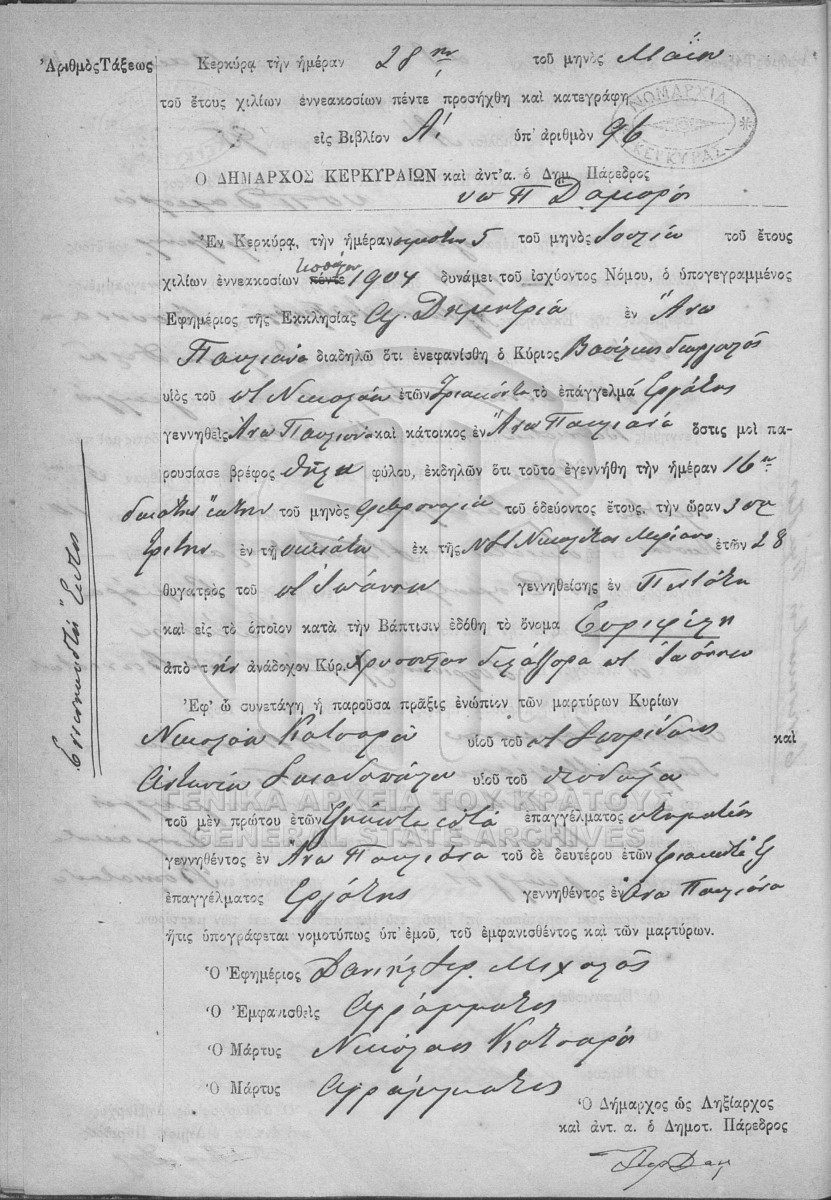 Ἀριθμὸς Τάξεως
Κερκύρᾳ τὴν ἡμέραν 28ην τοῦ μηνὸς Μαΐου
τοῦ ἔτους χιλίων ἐννεακοσίων πέντε προσήχθη καὶ κατεγράφη
ΝΟΜΑΡΧΙΑ ΚΕΡΚΥΡΑΣ
εἰς Βιβλίον Α΄. ὑπ' ἀριθμὸν 96
Ὁ ΔΗΜΑΡΧΟΣ ΚΕΡΚΥΡΑΙΩΝ καὶ ἀντ'α. ὁ Δημ. Πάρεδρος
Ἐν Κερκύρᾳ, τὴν ἡμέραν πέμπτην 5 τοῦ μηνὸς Ἰουλίου τοῦ ἔτους
χιλίων ἐννεακοσίων πέντε τέσσαρα 1904 δυνάμει τοῦ ἰσχύοντος Νόμου, ὁ ὑπογεγραμμένος
Ἐφημέριος τῆς Ἐκκλησίας Ἁγ. Δημητρίου ἐν Ἄνω
Παυλιάνα διαδηλῶ ὅτι ἐνεφανίσθη ὁ Κύριος Βασίλειος
υἱὸς τοῦ Νικολάου ἐτῶν Τριάκοντα τὸ ἐπάγγελμα Ἐργάτης
γεννηθεὶς Ἄνω Παυλιάνα καὶ κάτοικος ἐν Ἄνω Παυλιάνα ὅστις μοὶ πα-
ρουσίασε βρέφος θῆλυ φύλου, ἐκδηλῶν ὅτι τοῦτο ἐγεννήθη τὴν ἡμέραν 16ην
δεκάτην ἕκτην τοῦ μηνὸς Φεβρουαρίου τοῦ ὁδεύοντος ἔτους, τὴν ὥραν 3
τρίτην ἐν τῇ οἰκίᾳ του ἐκ τῆς ἐτῶν 28
θυγατρὸς τοῦ Ἰωάννου γεννηθείσης ἐν
καὶ εἰς τὸ ὁποῖον κατὰ τὴν Βάπτισιν ἐδόθη τὸ ὄνομα Εὐριφίλη
ἀπὸ τὴν ἀνάδοχον Κύρι Ἰωάννου
Ἐφ' ᾧ συνετάγη ἡ παροῦσα πρᾶξις ἐνώπιον τῶν μαρτύρων Κυρίων
Νικολάου Κατσαροῦ υἱοῦ τοῦ Σπυρίδωνος καὶ
Ἀντωνίου υἱοῦ τοῦ Θεοδώρου
τοῦ μὲν πρώτου ἐτῶν ἑξήκοντα ἑπτὰ ἐπαγγέλματος κτηματίας
γεννηθέντος ἐν Ἄνω Παυλιάνα τοῦ δὲ δευτέρου ἐτῶν τριάκοντα ἓξ
ἐπαγγέλματος Ἐργάτης γεννηθέντος ἐν Ἄνω Παυλιάνα
ἥτις ὑπογράφεται νομοτύπως ὑπ' ἐμοῦ, τοῦ ἐμφανισθέντος καὶ τῶν μαρτύρων.
Ὁ Ἐφημέριος Δανιὴλ Ἱερ. Μιχαλᾶς
Ὁ Ἐμφανισθεὶς Ἀγράμματος
Ὁ Μάρτυς Νικόλαος Κατσαρός
Ὁ Μάρτυς Ἀγράμματος
Ὁ Δήμαρχος ὡς Ληξίαρχος
καὶ ἀντ. α. ὁ Δημοτ. Πάρεδρος
Ἐνενηκοστὴ Ἕκτη
ΓΕΝΙΚΑ ΑΡΧΕΙΑ ΤΟΥ ΚΡΑΤΟΥΣ
GENERAL STATE ARCHIVES